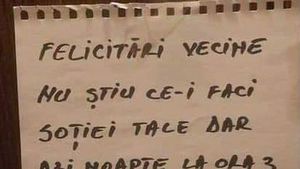 FELICITĂRI VECINE
NU ȘTIU CE-I FACI
SOȚIEI TALE DAR
AZI NOAPTE LA ORA 3